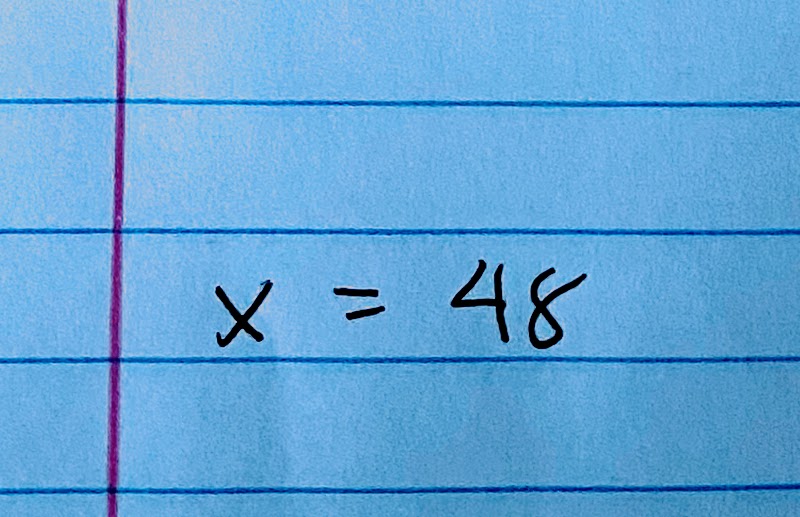 x = 48